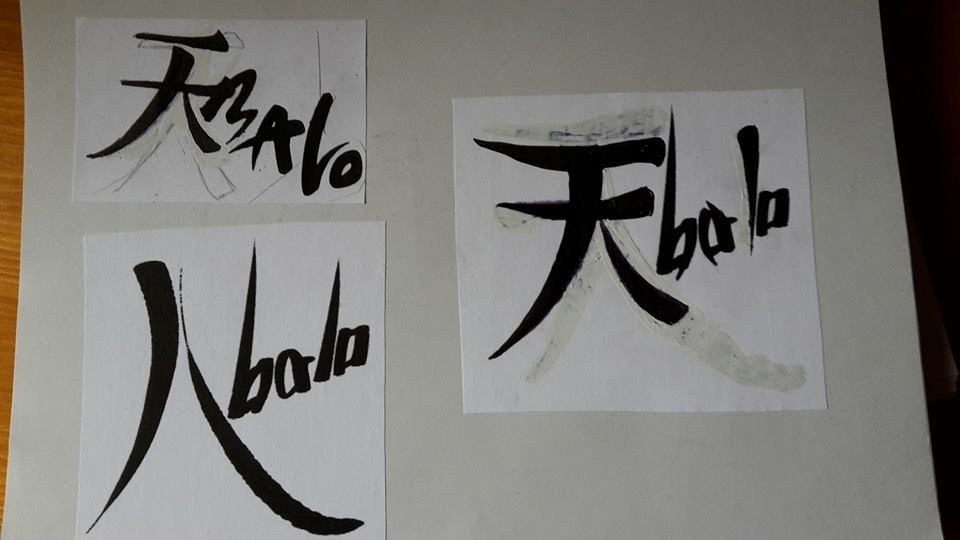 天BAlo
天balo
人balo